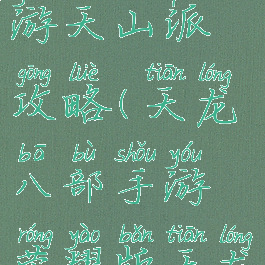 游天山派
gōng lüè tiān lóng
攻略(天龙
bā bù shǒu yóu
八部手游
róng yào bǎn tiān lóng
荣耀版天龙